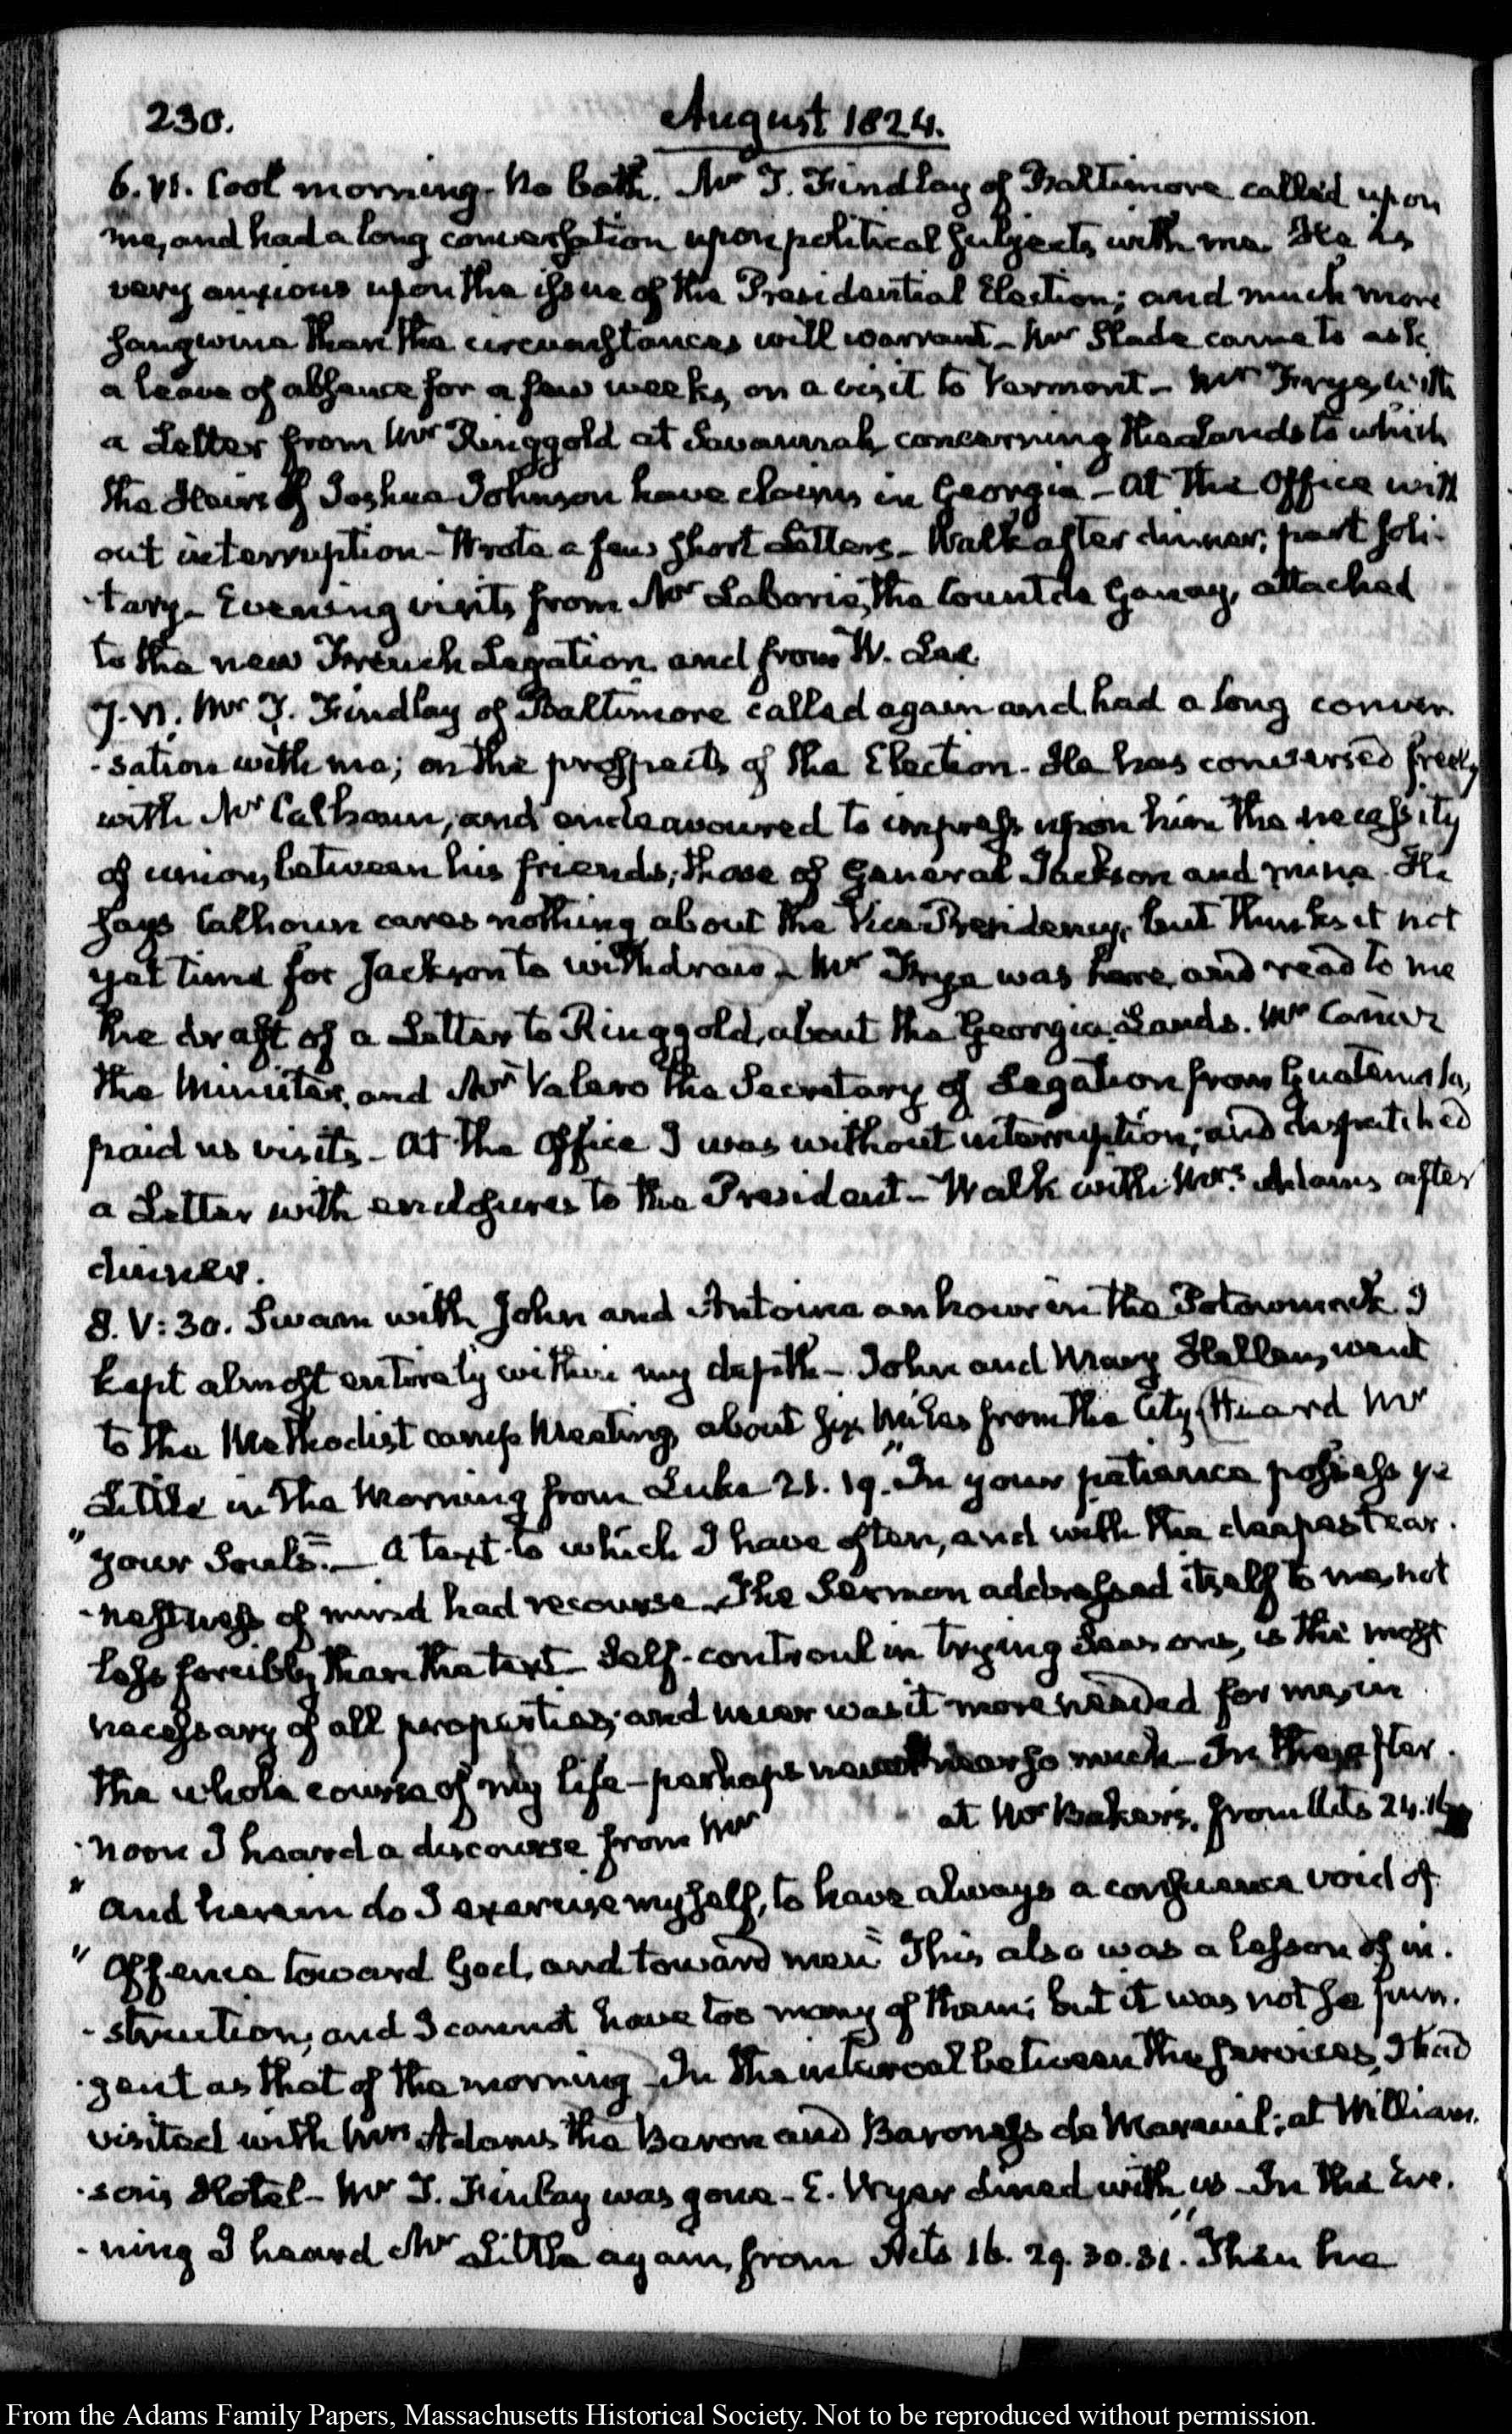 230.
August 1824.
6. VI. Cool morning. No bath. Mr J. Findlay of Baltimore called upon
me, and had a long conversation upon political subjects with me. He is
very anxious upon the issue of the Presidential Election; and much more
sanguine than the circumstances will warrant. Mr Slade came to ask
a leave of absence for a few weeks, on a visit to Vermont. Mr Frye, with
a Letter from Mr Ringgold at Savannah concerning the Lands to which
the Heirs of Joshua Johnson have claims in Georgia. At the Office with
out interruption. Wrote a few short Letters. Walk after dinner; part soli-
-tary. Evening visits from Mr Laborie, the Count de Ganay, attached
to the new French Legation and from W. Lee.
7. VI. Mr J. Findlay of Baltimore called again and had a long conver-
-sation with me; on the prospects of the Election. He has conversed freely
with Mr Calhoun, and endeavoured to impress upon him the necessity
of union, between his friends; those of General Jackson and mine. He
says Calhoun cares nothing about the Vice Presidency, but thinks it not
yet time for Jackson to withdraw. Mr Frye was here, and read to me
the draft of a Letter to Ringgold, about the Georgia Lands. Mr Canaz
the Minister, and Mr Valero the Secretary of Legation from Guatemala,
paid us visits. At the Office I was without interruption; and dispatched
a Letter with enclosures to the President. Walk with Mrs Adams after
dinner.
8. V:30. Swam with John and Antoine an hour in the Potowmack I
kept almost entirely within my depth. John and Mary Hellen, went
to the Methodist camp Meeting, about six Miles from the City, I heard Mr
Little in the Morning from Luke 21. 19. "In your patience possess ye
"your Souls." A text to which I have often, and with the deepest ear-
-nestness of mind had recourse. The Sermon addressed itself to me, not
less forcibly than the text. Self-controul in trying Seasons, is the most
necessary of all properties; and never was it more needed for me, in
the whole course of my life—perhaps never near so much. In the after-
-noon I heard a discourse from Mr at Mr Baker's, from Acts 24. 16
"and herein do I exercise myself, to have always a conscience void of
"offence toward God, and toward men" This also was a lesson of in-
-struction, and I cannot have too many of them; but it was not so pun-
-gent as that of the morning. In the interval between the services, I had
visited with Mrs Adams the Baron and Baroness de Mareuil; at William-
-son's Hotel. Mr J. Finlay was gone. E. Wyer dined with us. In the Eve-
-ning I heard Mr Little again, from Acts 16. 29. 30. 31. "Then he
From the Adams Family Papers, Massachusetts Historical Society. Not to be reproduced without permission.